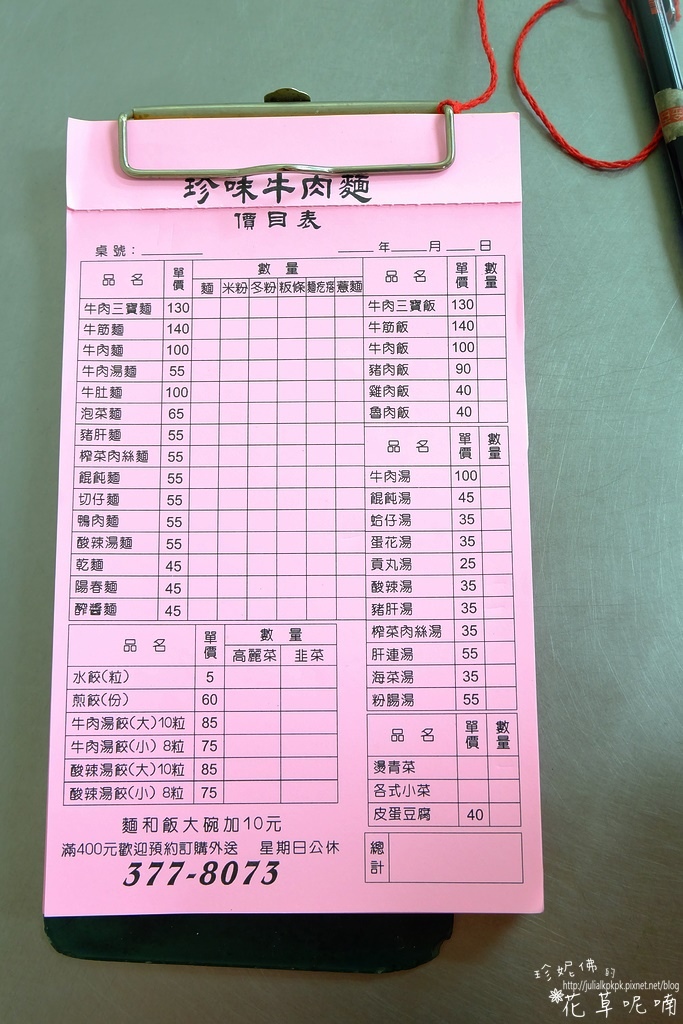 珍味牛肉麵
價目表
桌號：　年　月　日
品名 單價 數量
麵 米粉 冬粉 粄條 麵疙瘩 薏麵
牛肉三寶麵 130
牛筋麵 140
牛肉麵 100
牛肉湯麵 55
牛肚麵 100
泡菜麵 65
豬肝麵 55
榨菜肉絲麵 55
餛飩麵 55
切仔麵 55
鴨肉麵 55
酸辣湯麵 55
乾麵 45
陽春麵 45
酢醬麵 45
品名 單價 數量
高麗菜 韭菜
水餃(粒) 5
煎餃(份) 60
牛肉湯餃(大)10粒 85
牛肉湯餃(小) 8粒 75
酸辣湯餃(大)10粒 85
酸辣湯餃(小) 8粒 75
品名 單價 數量
牛肉三寶飯 130
牛筋飯 140
牛肉飯 100
豬肉飯 90
雞肉飯 40
魯肉飯 40
品名 單價 數量
牛肉湯 100
餛飩湯 45
蛤仔湯 35
蛋花湯 35
貢丸湯 25
酸辣湯 35
豬肝湯 35
榨菜肉絲湯 35
肝連湯 55
海菜湯 35
粉腸湯 55
品名 單價 數量
燙青菜
各式小菜
皮蛋豆腐 40
總計
麵和飯大碗加10元
滿400元歡迎預約訂購外送　星期日公休
377-8073
珍妮佛的
http://julialkpkpk.pixnet.net/blog
花草呢喃